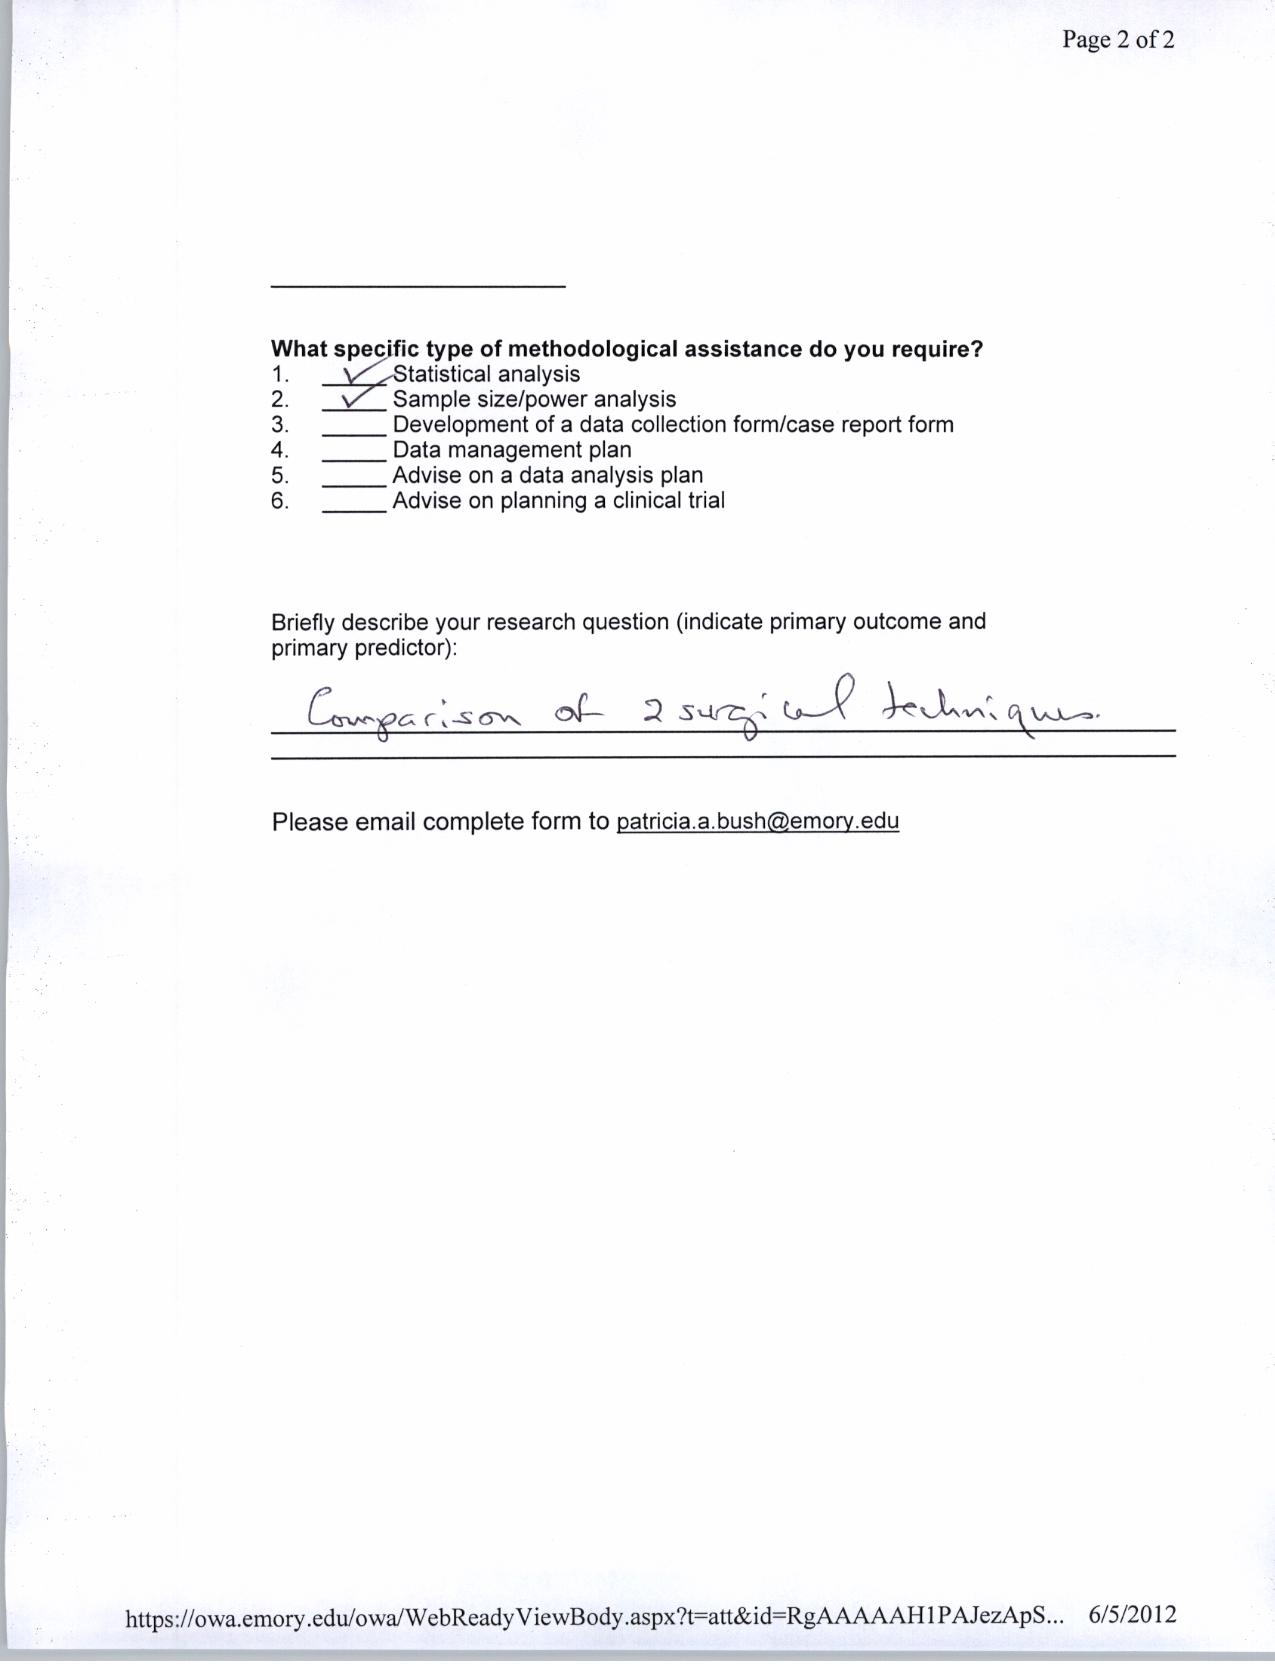 Page 2 of 2
What specific type of methodological assistance do you require?
1. ✓ Statistical analysis
2. ✓ Sample size/power analysis
3. ______ Development of a data collection form/case report form
4. ______ Data management plan
5. ______ Advise on a data analysis plan
6. ______ Advise on planning a clinical trial
Briefly describe your research question (indicate primary outcome and
primary predictor):
Comparison of 2 surgical techniques.
Please email complete form to patricia.a.bush@emory.edu
https://owa.emory.edu/owa/WebReadyViewBody.aspx?t=att&id=RgAAAAAH1PAJezApS... 6/5/2012